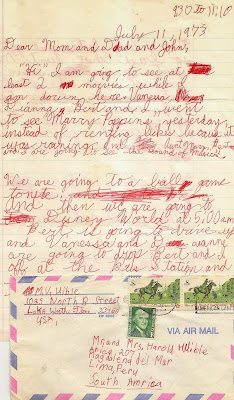 930 to 11:10
July 11, 1973
Dear Mom and Dad and John,
"Hi" I am going to see at
least 2 movies, while I
am down here. Vanessa,
Dianna, Bert and I went
to see Marry Poppins yesterday,
instead of renting bikes because it
was raining and Aunt Mary, Bert
and I are going to see the Sound of Music.
We are going to a ball game
tonite and
then we are going to
Disney World at 5:00am
Bert is going to drive up
and Vanessa and Dianne
are going to drop Bert and I
off at the Bus Station and
M.V. Wible
1031 North A Street
Lake Worth, Fla.
USA
VIA AIR MAIL
Mr and Mrs. Harold H Wible
Magdalena del Mar
Lima, Peru
South America